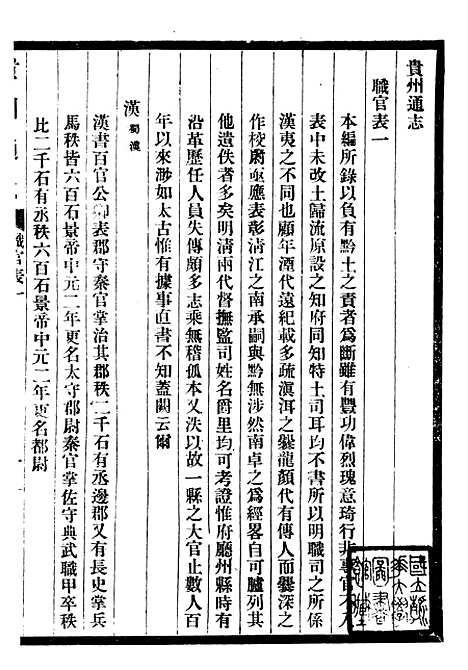 貴州通志
職官表一
本編所錄以負有黔土之責者為斷雖有豐功偉烈瑰意琦行非專官不入
表中未改土歸流原設之知府同知特土司耳均不書所以明職司之所係
漢夷之不同也顧年湮代遠紀載多疏滇洱之爨龍顏代有傳人而爨深之
作校尉亟應表彰清江之南承嗣與黔無涉然南卓之為經畧自可臚列其
他遺佚者多矣明清兩代督撫監司姓名爵里均可考證惟府廳州縣時有
沿革歷任人員失傳頗多志乘無稽孤本又泆以故一縣之大官止數人百
年以來渺如太古惟有據事直書不知蓋闕云爾
漢 蜀漢
漢書百官公卿表郡守秦官掌治其郡秩二千石有丞邊郡又有長史掌兵
馬秩皆六百石景帝中元二年更名太守郡尉秦官掌佐守典武職甲卒秩
比二千石有丞秩六百石景帝中元二年更名都尉
職官表一